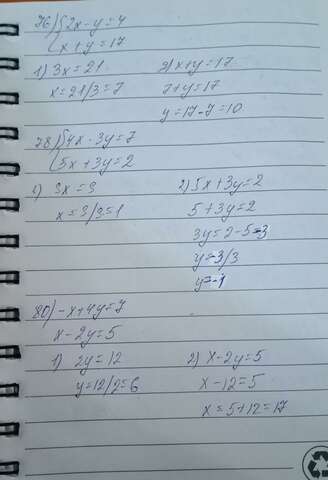 76) { 2x - y = 4
{ x + y = 17
1) 3x = 21. 2) x + y = 17
x = 21/3 = 7 7 + y = 17
y = 17 - 7 = 10
78) { 4x - 3y = 7
{ 5x + 3y = 2
1) 9x = 9 2) 5x + 3y = 2
x = 9/9 = 1 5 + 3y = 2
3y = 2 - 5 = -3
y = -3/3
y = -1
80) -x + 4y = 7
x - 2y = 5
1) 2y = 12 2) x - 2y = 5
y = 12/2 = 6 x - 12 = 5
x = 5 + 12 = 17